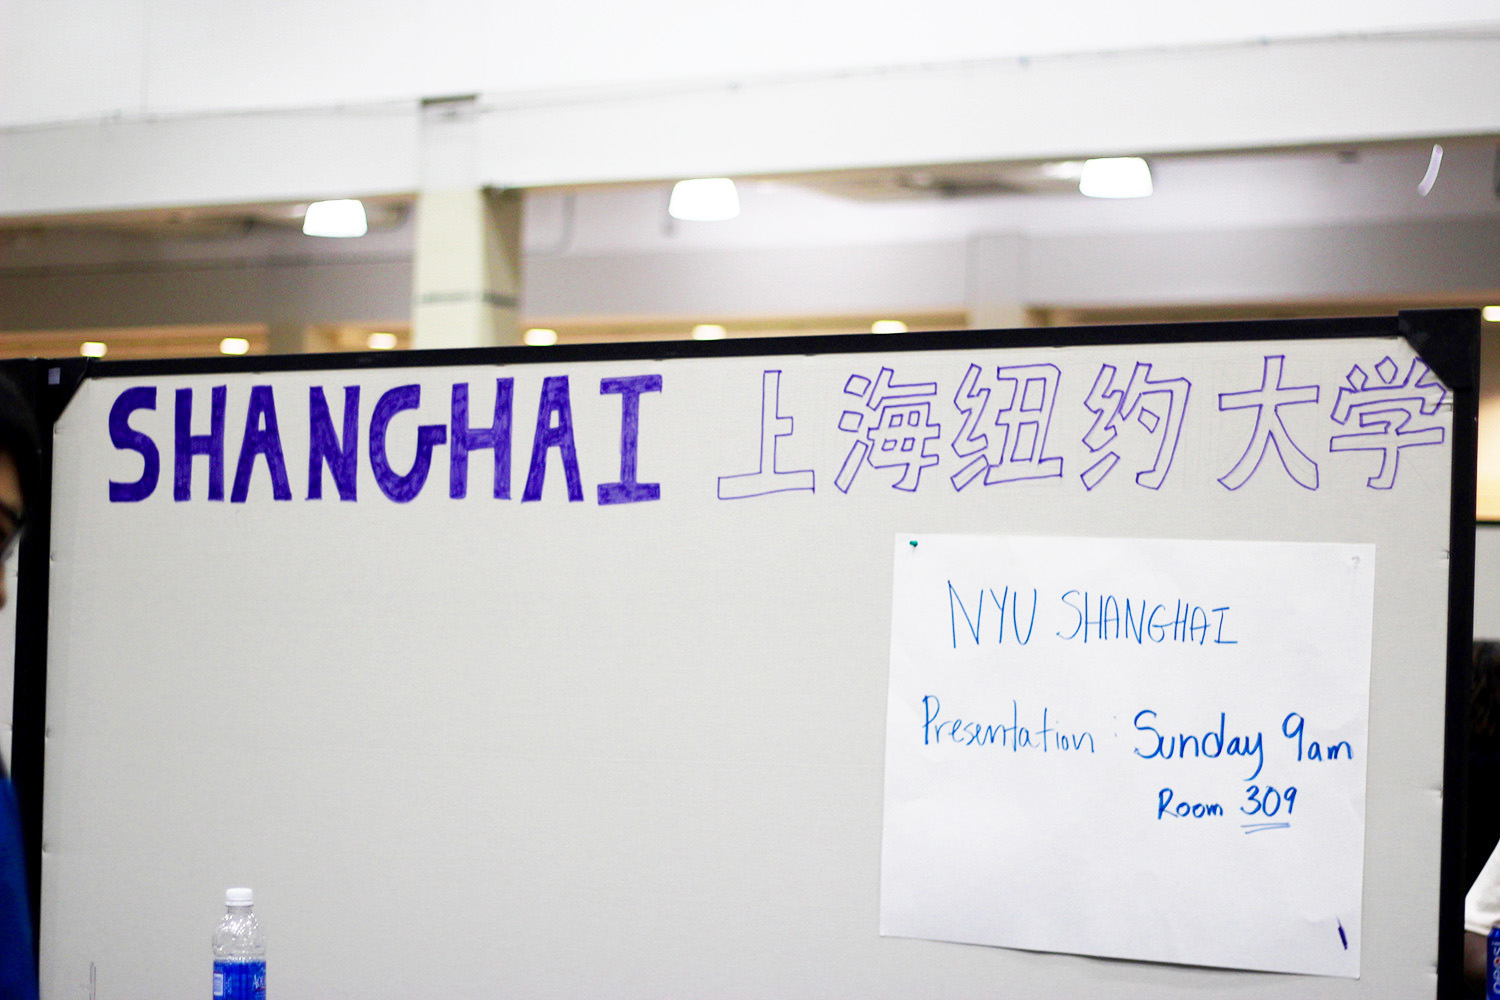 SHANGHAI 上海纽约大学
NYU SHANGHAI
Presentation : Sunday 9am
Room 309
pepsi